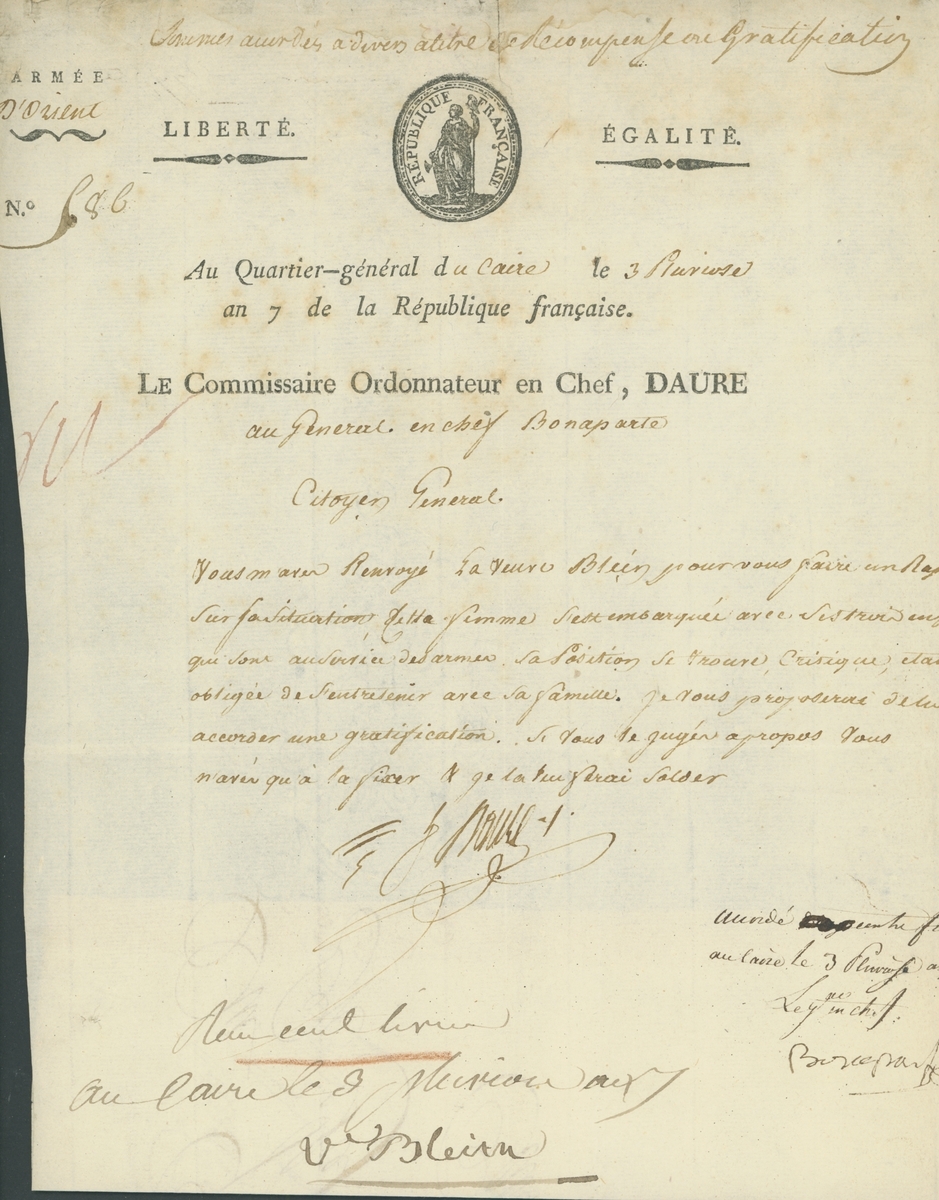 Sommes accordés a divers a titre de Récompense ou Gratification
ARMÉE
D'Orient
LIBERTÉ.
RÉPUBLIQUE FRANÇAISE
ÉGALITÉ.
N.º 586
Au Quartier-général du Caire le 3 Pluviose
an 7 de la République française.
LE Commissaire Ordonnateur en Chef, DAURE
au General en chef Bonaparte
Citoyen General.
Vous m'avez Renvoyé La Veuve Bléin pour vous faire un Rap
Sur sa Situation Cette femme S'est embarquée avec Ses trois en
qui sont au Service des armes. Sa Position Se trouve Critique, etan
obligée de S'entretenir avec Sa famille. Je vous proposerai de lu
accorder une gratification. Si Vous le jugés apropos Vous
n'avés qu'à la fixer & je la lui ferai Solder
Daure
accordé cents f
au Caire le 3 Pluviose a
Le g.ⁿᵃˡ en chef.
Bonaparte
cent livres
au Caire le 3 Pluviose an 7
V.ᵉ Bleien